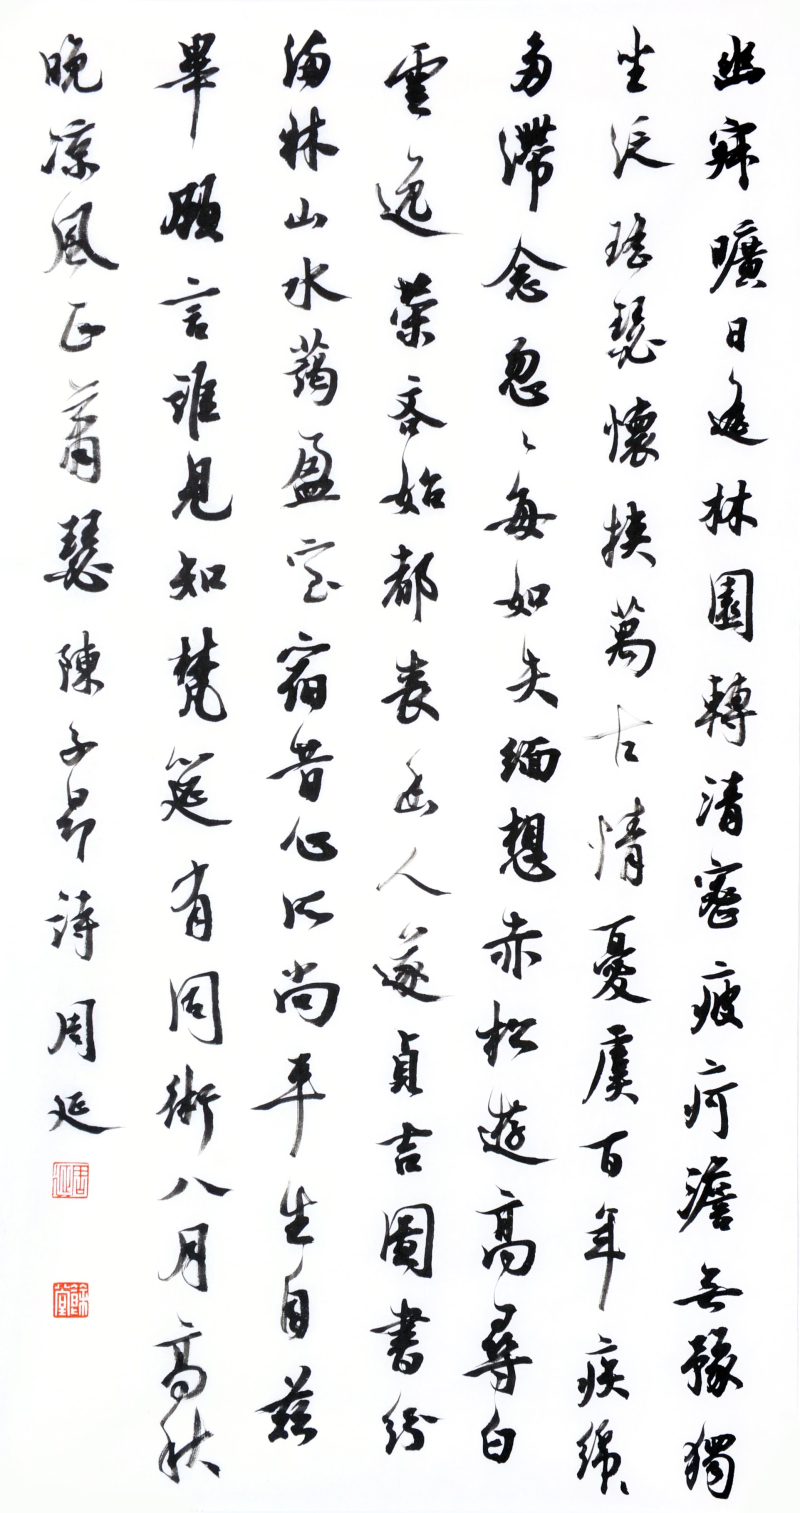 幽寂曠日遙林園轉清密疲疴澹無豫獨
坐泛瑤瑟懷挾萬古情憂虞百年疾綿〻
多滯念忽〻每如失緬想赤松遊高尋白
雲逸榮吝始都喪幽人遂貞吉圖書紛
滿牀山水藹盈室宿昔心所尚平生自茲
畢願言誰見知梵筵有同術八月高秋
晚涼風正蕭瑟陳子昂詩周延
周延